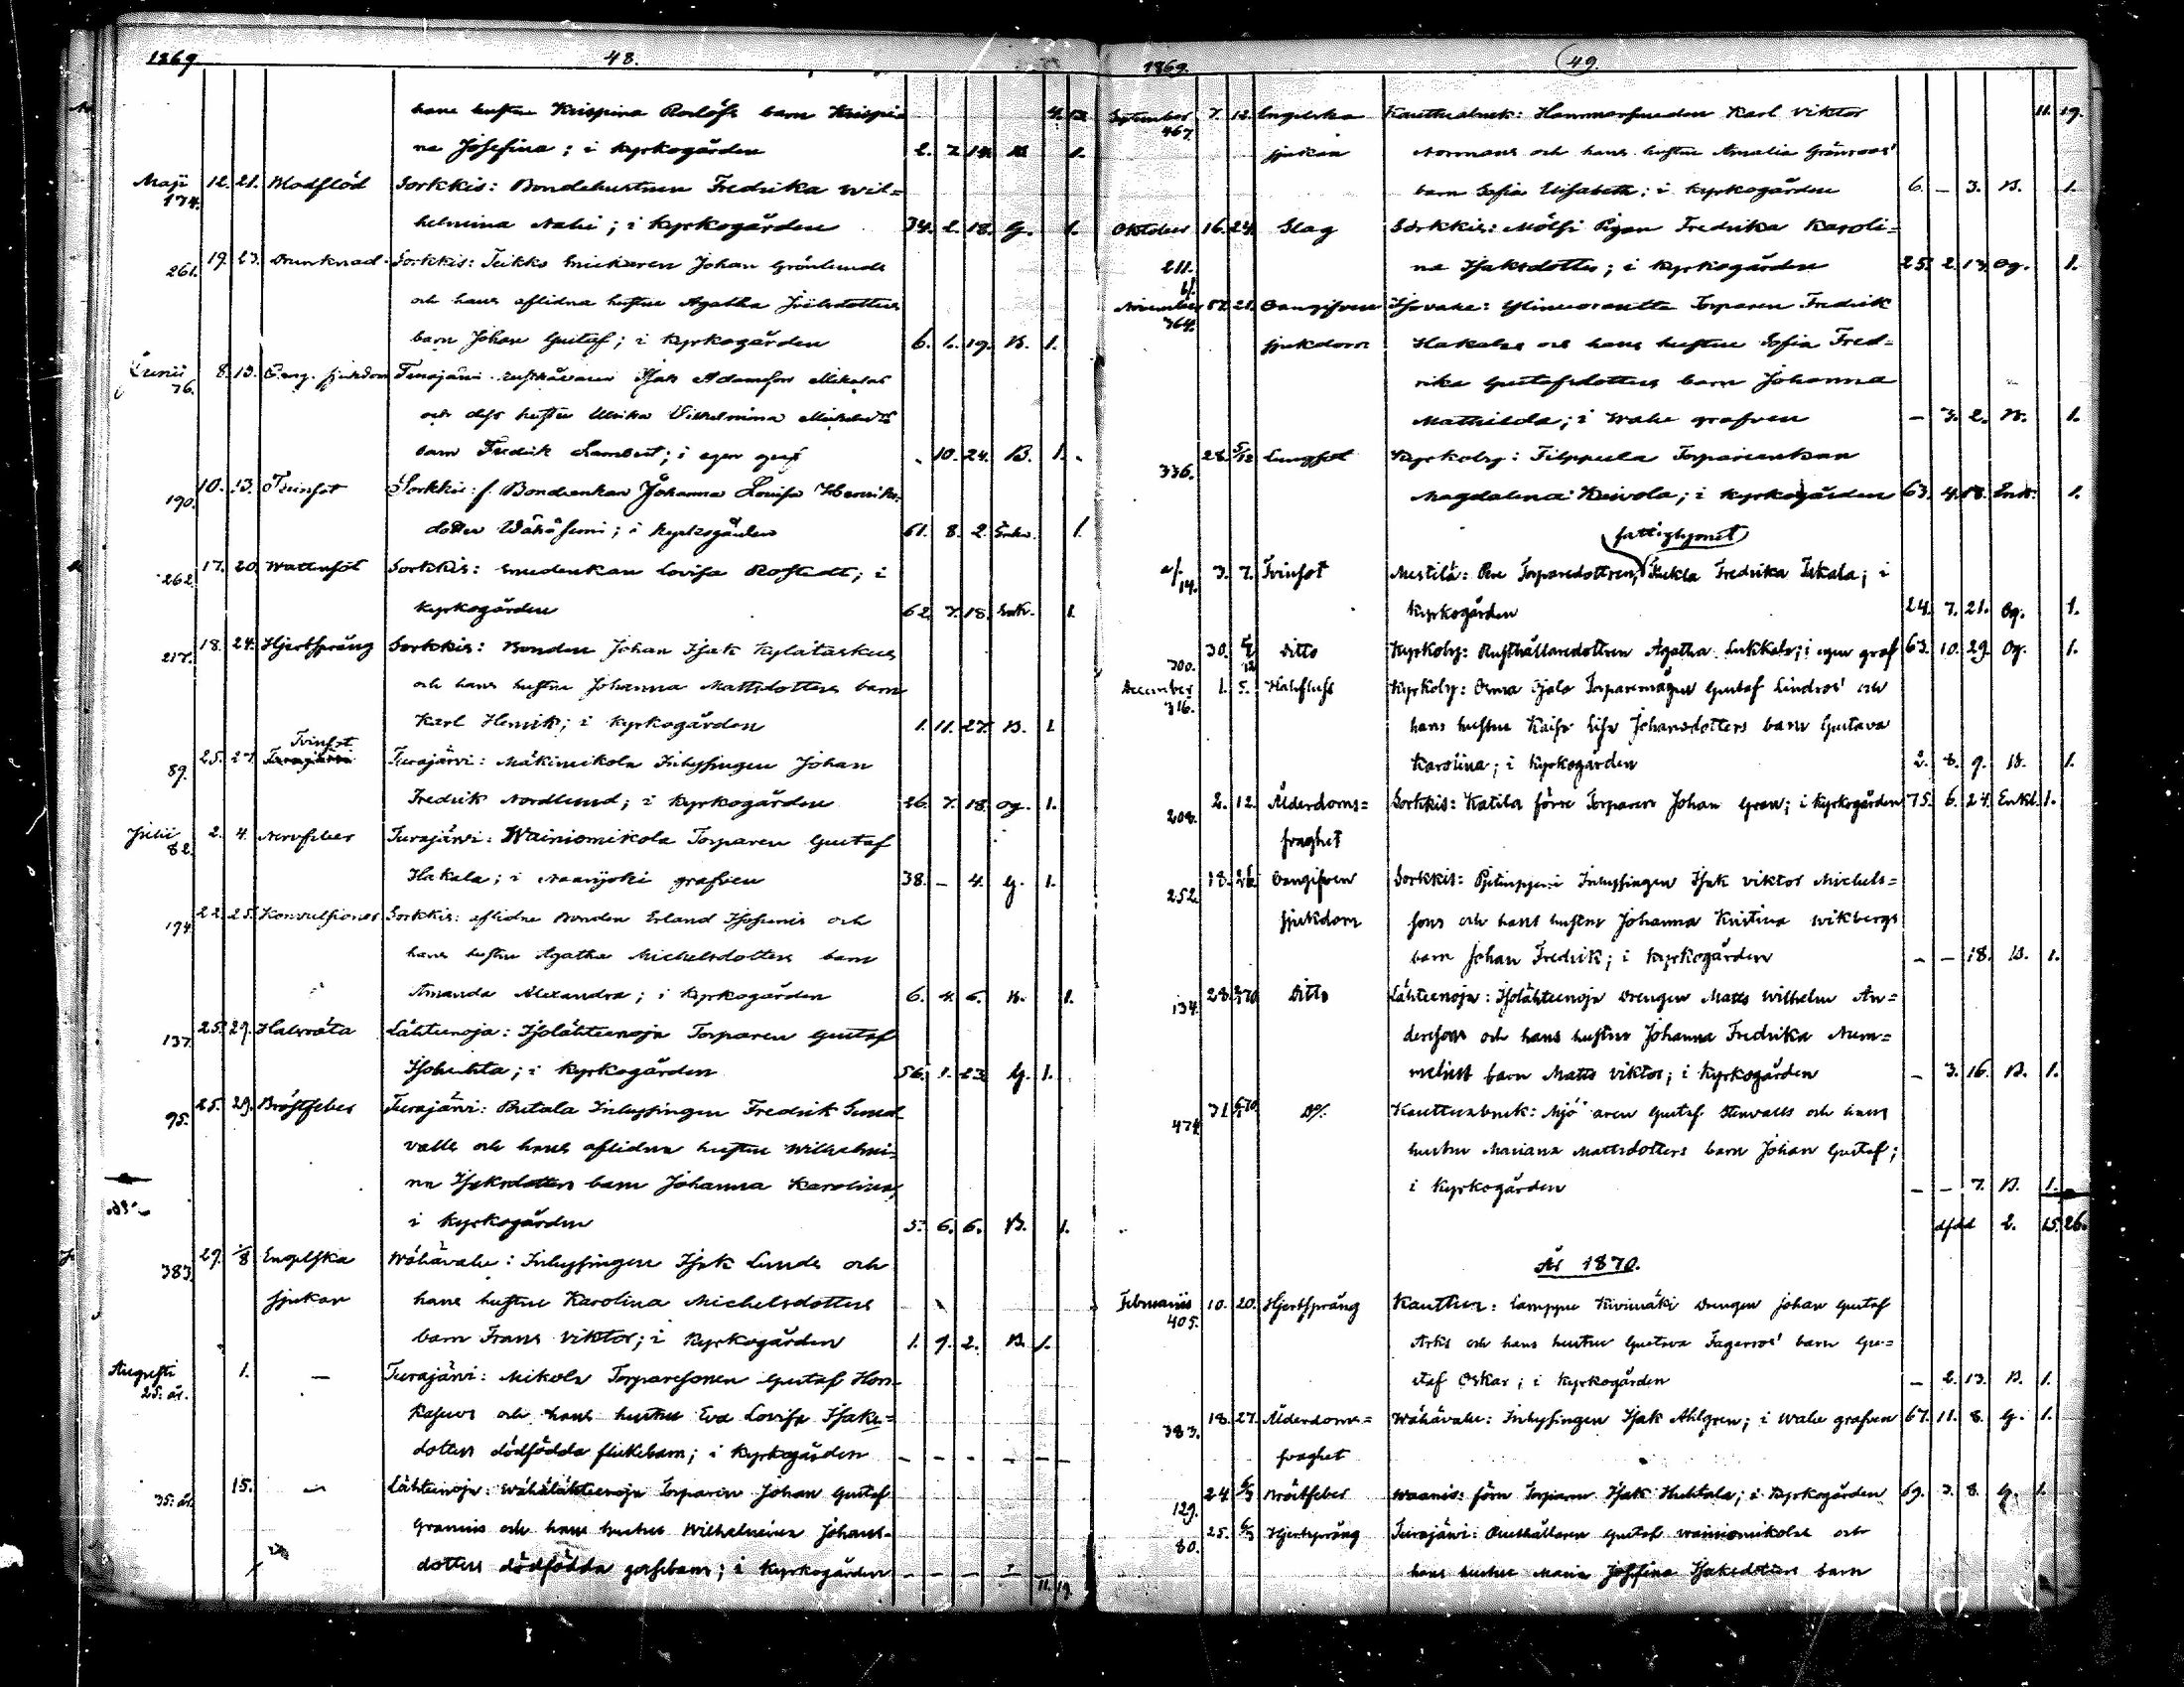 1869 48.
hans hustru Krispina Roslöfs barn Krispi- 4. 13.
na Josefina; i Kyrkogården 2. 7. 14. 1.
Maji 174. 12. 21. Blodflöd Sorkkis: Bondehustrun Fredrika Wil=
helmina Nahi; i Kyrkogården 34. 2. 18. G. 1.
261. 19. 23. Drunknad Sorkkis: Teikko Snickaren Johan Grönlunds
och hans aflidna hustru Agatha Joelsdotters
barn Johan Gustaf; i Kyrkogården 6. 6. 19. B. 1.
Junii 76. 8. 13. Oang. sjukdom Turajärvi Isak Adamsson Mikolas
och dess hustru Ulrika Vilhelmina
barn Fredrik Lambert; i egen graf 10. 24. B. 1.
190. 10. 13. Tvinsot Sorkkis: f. Bondenkan Johanna Lovisa Henriks-
dotter Wähäsimi; i Kyrkogården 61. 8. 2. Enk. 1.
262. 17. 20. Wattusot Sorkkis: Smedenkan Lovisa Rostedt; i
Kyrkogården 62. 7. 18. Enk. 1.
217. 18. 24. Hjertsprång Sorkkis: Bonden Johan Isak Kylätaskus
och hans hustru Johanna Mattsdotters barn
Karl Henrik; i Kyrkogården 1. 11. 27. B. 1.
Tvinsot
89. 25. 27. Turajärvi Turajärvi: Mäkimikola Inhysingen Johan
Fredrik Nordlund; i Kyrkogården 26. 7. 18. Og. 1.
Julii 82. 2. 4. Nervfeber Turajärvi: Wainiomikola Torparen Gustaf
Hakala; i Naarijoki grafven 38. – 4. G. 1.
174. 22. 25. Konvulsioner Sorkkis: aflidne Bonden Erland Isosimis och
hans hustru Agatha Michelsdotters barn
Amanda Alexandra; i Kyrkogården 6. 4. 6. B. 1.
137. 25. 29. Halsröta Lähteenoja: Isolähteenoja Torparen Gustaf
Isohuhta; i Kyrkogården 56. 1. 23. G. 1.
95. 25. 29. Bröstfeber Turajärvi: Pritala Inhysingen Fredrik Sund-
valls och hans aflidna hustru Wilhelmi-
na Isaksdotters barn Johanna Karolina;
i Kyrkogården 5. 6. 6. B. 1.
383. 29. 1/8 Engelska Wähävahe: Inhysingen Isak Lunds och
sjukan hans hustru Karolina Michelsdotters
barn Frans Viktor; i Kyrkogården 1. 9. 2. B. 1.
Augusti 25. år. 1. – Turajärvi: Mikola Torparesonen Gustaf Hon-
kasuos och hans hustru Eva Lovisa Isaks=
dotters dödfödda flickebarn; i Kyrkogården – – – – – –
35. år. 15. – Lähteenoja: Wähälähteenoja Torparen Johan Gustaf
Graniis och hans hustru Wilhelmina Johans-
dotters dödfödda gossebarn; i Kyrkogården – – – – 11. 19.
1869. 49.
September 467. 7. 12. Engelska Kauttuabruk: Hammarsmeden Karl Viktor 11. 19.
sjukan Normans och hans hustru Amalia Grönroos'
barn Sofia Elisabeth; i Kyrkogården 6. – 3. B. 1.
Oktober 211. 16. 24. Slag Sorkkis: Mölsi Pigan Fredrika Karoli=
na Isaksdotter; i Kyrkogården 25. 2. 13. Og. 1.
November 364. 21. Oangifven Isovahe: Torparen Fredrik
sjukdom Hakalas och hans hustru Sofia Fred=
rika Gustafsdotters barn Johanna
Mathilda; i Wahe grafven – 3. 2. B. 1.
336. 28. 5/12 Lungsot Kyrkoby: Filppula Torpareenkan
Magdalena Keivola; i Kyrkogården 63. 4. 18. Enk. 1.
fattighjonet
a/. 14. 3. 7. Tvinsot Mestilä: Pere Torparedottren, Thekla Fredrika Iskala; i
Kyrkogården 24. 7. 21. Og. 1.
300. 30. 5/12 Ditto Kyrkoby: Rusthållaredottren Agatha Lukkala; i egen graf 63. 10. 29. Og. 1.
December 316. 1. 5. Halsfluss Kyrkoby: Orma Ojala Torparemågen Gustaf Lindros' och
hans hustru Kaisa Lisa Johansdotters barn Gustava
Karolina; i Kyrkogården 2. 8. 9. B. 1.
208. 2. 12. Ålderdoms= Sorkkis: Katila förre Torparen Johan Gran; i Kyrkogården 75. 6. 24. Enkl. 1.
svaghet
252. 18. 26. Oangifven Sorkkis: Inhysingen Isak Viktor Michels=
sjukdom sons och hans hustrus Johanna Kristina Wikbergs
barn Johan Fredrik; i Kyrkogården – – 18. B. 1.
134. 28. Ditto Lähteenoja: Isolähteenoja Drengen Matts Wilhelm An=
dersson och hans hustrus Johanna Fredrika Num=
melins barn Matts Viktor; i Kyrkogården – 3. 16. B. 1.
474. 31. D:o Kauttuabruk: Gustaf Stenvalls och hans
hustru Mariana Mattsdotters barn Johan Gustaf;
i Kyrkogården – – 7. B. 1.
dfdd 2. 25. 26.
År 1870.
Februarii 405. 10. 20. Hjertsprång Kauttua: Lamppu Kivimäki Drengen Johan Gustaf
Arkis och hans hustru Gustava Fagerros' barn Gu=
staf Oskar; i Kyrkogården – 2. 13. B. 1.
383. 18. 27. Ålderdoms= Wähävahe: Inhysingen Isak Ahlgren; i Wahe grafven 67. 11. 8. G. 1.
svaghet
129. 24. 6/3 Bröstfeber Waanis: förre Torparen Isak Huhtala; i Kyrkogården 69. 3. 8. G. 1.
80. 25. 6/3 Hjertsprång Turajärvi: Rusthållaren Gustaf Wainiomikolas och
hans hustru Maria Josefina Isaksdotters barn